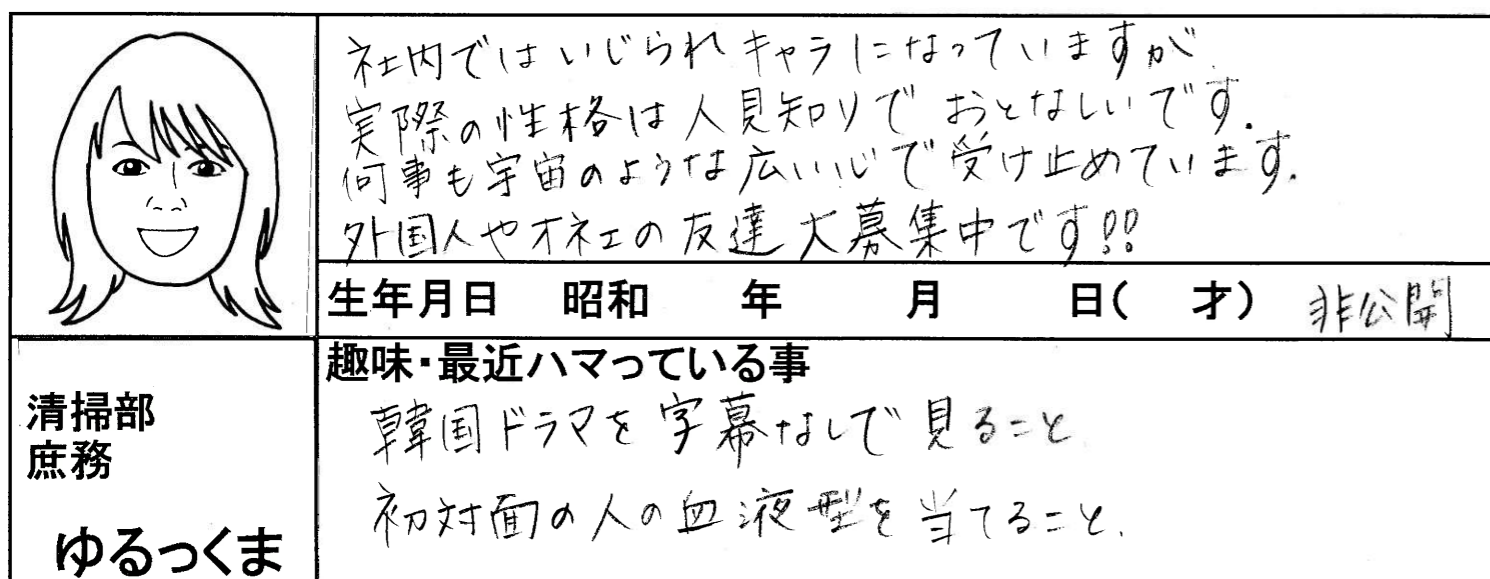 社内ではいじられキャラになっていますが
実際の性格は人見知りでおとなしいです.
何事も宇宙のような広い心で受け止めています.
外国人やオネエの友達大募集中です!!
生年月日 昭和 年 月 日( 才) 非公開
清掃部
庶務
ゆるっくま
趣味・最近ハマっている事
韓国ドラマを字幕なしで見ること
初対面の人の血液型を当てること.